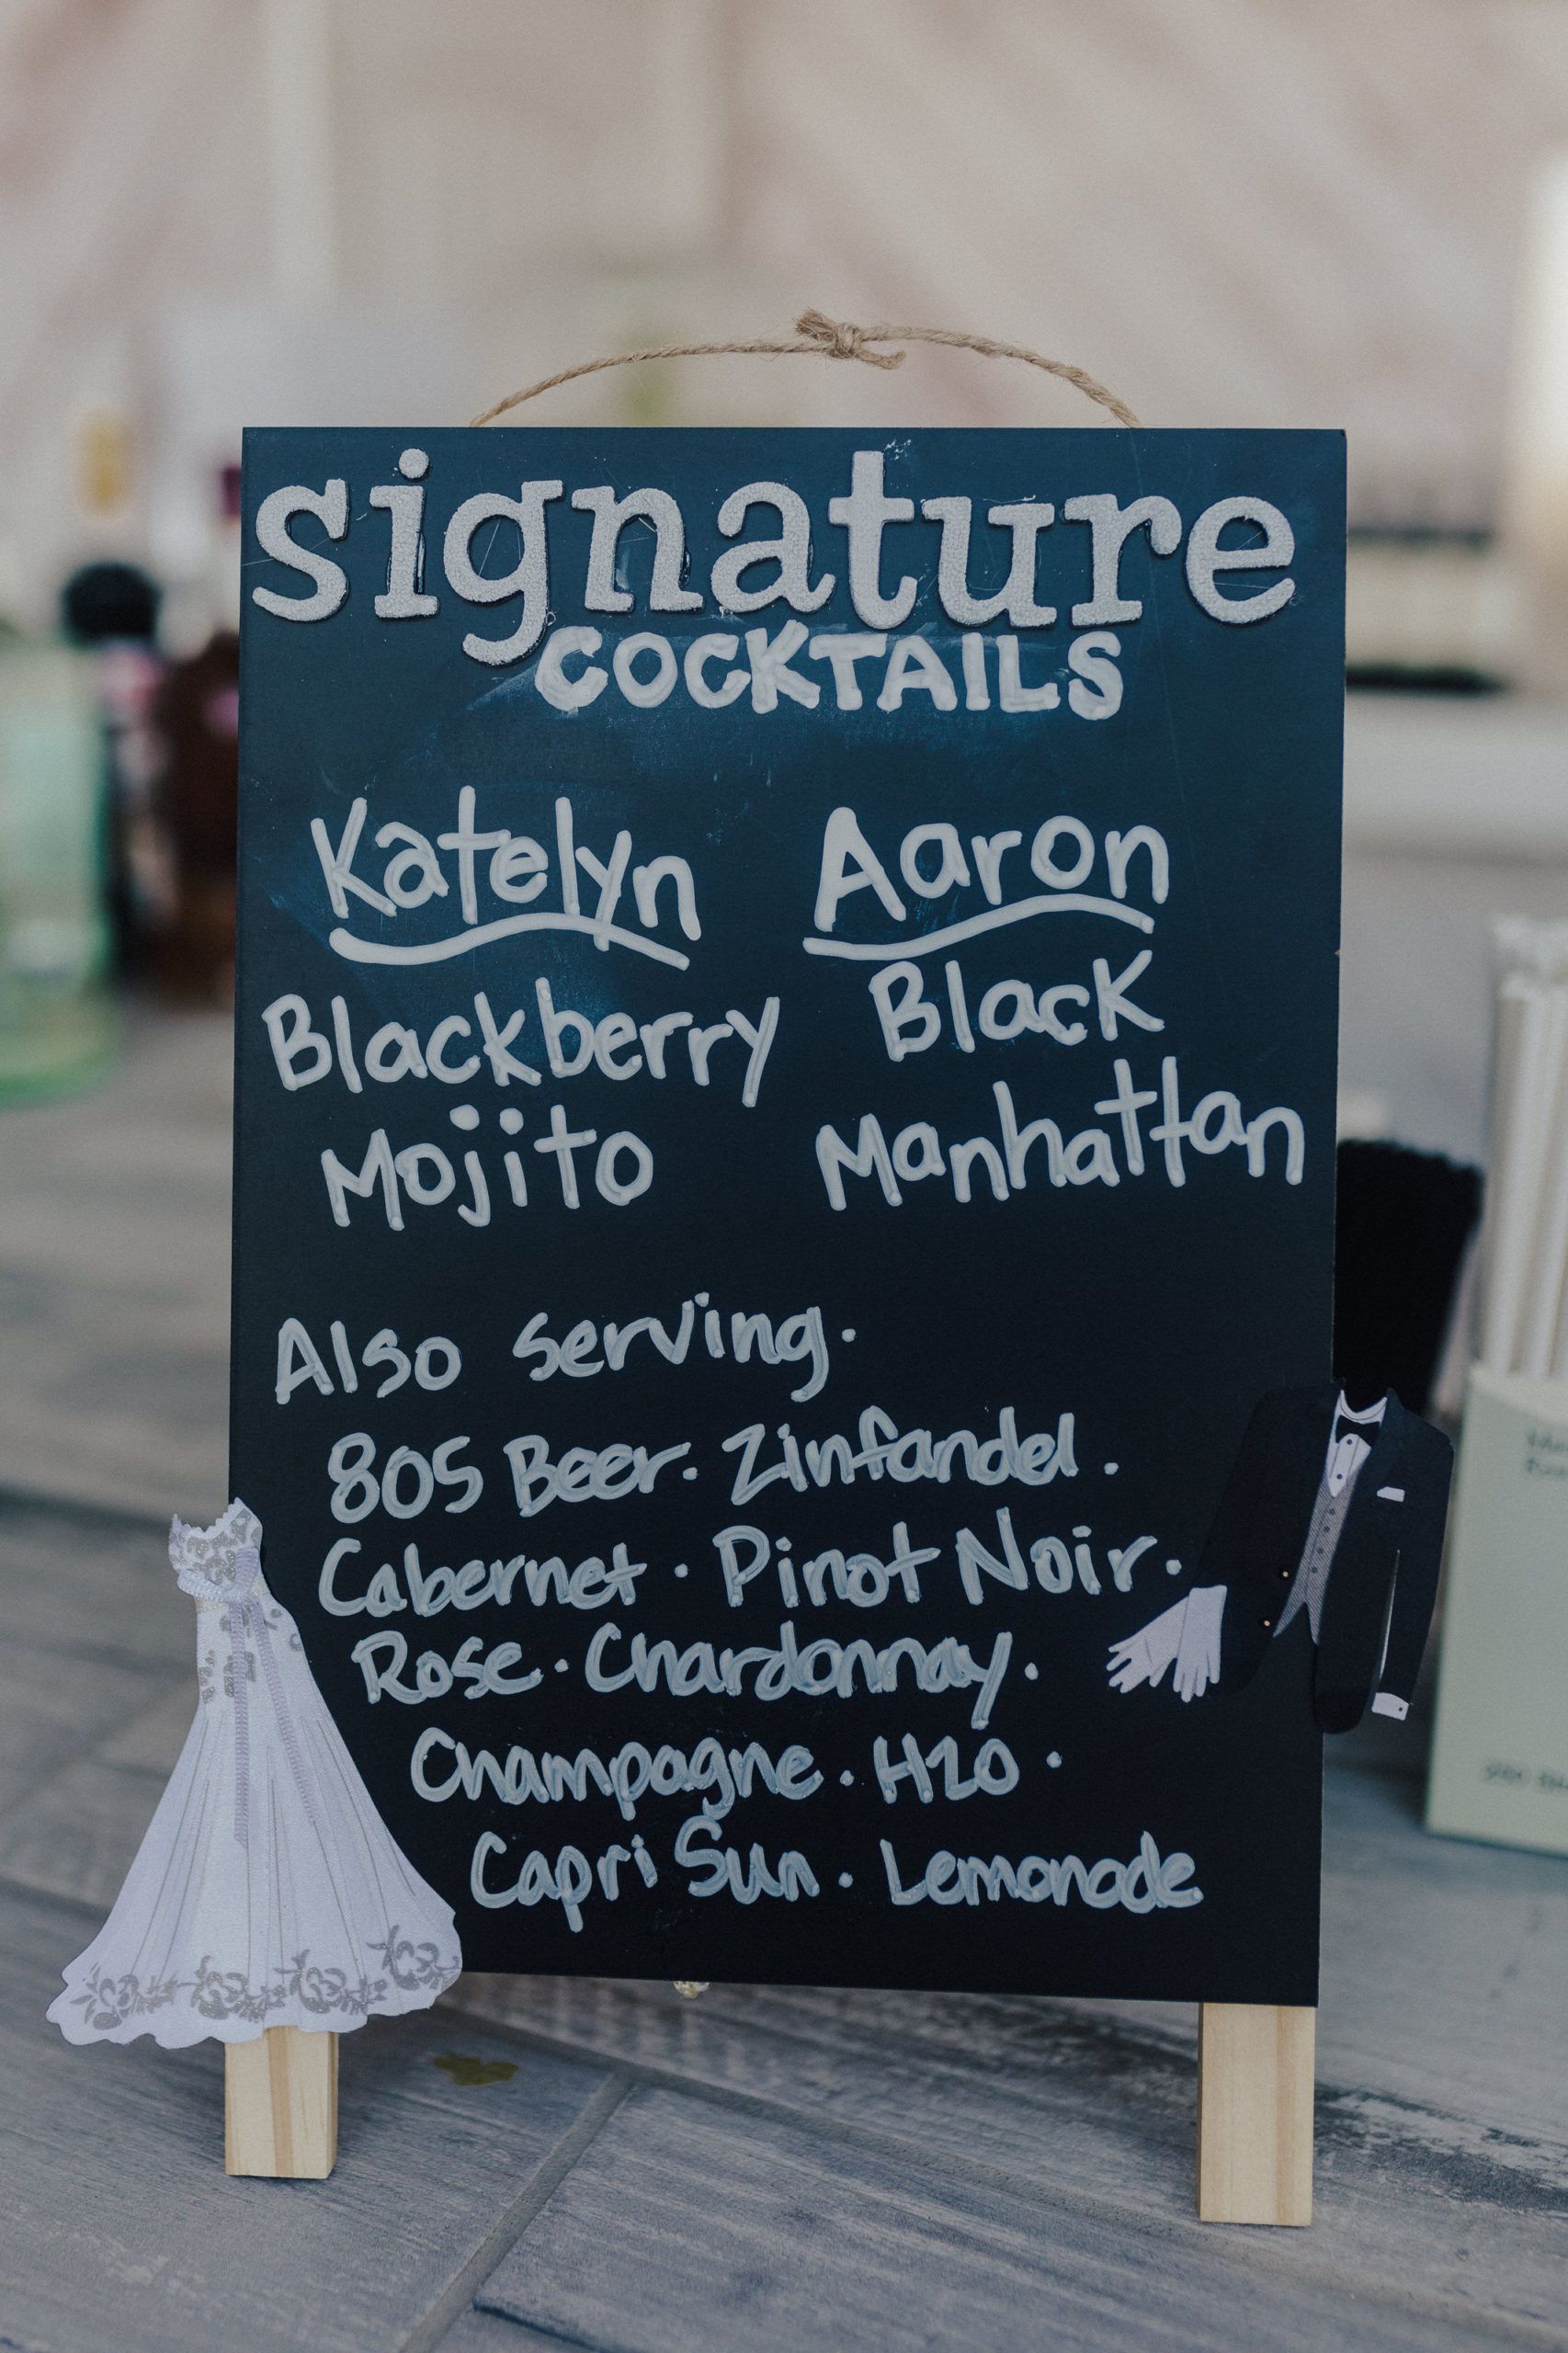 signature
COCKTAILS
Katelyn Aaron
Blackberry Black
Mojito Manhattan
Also serving.
805 Beer. Zinfandel.
Cabernet · Pinot Noir.
Rose · Chardonnay.
Champagne · H20 ·
Capri Sun · Lemonade